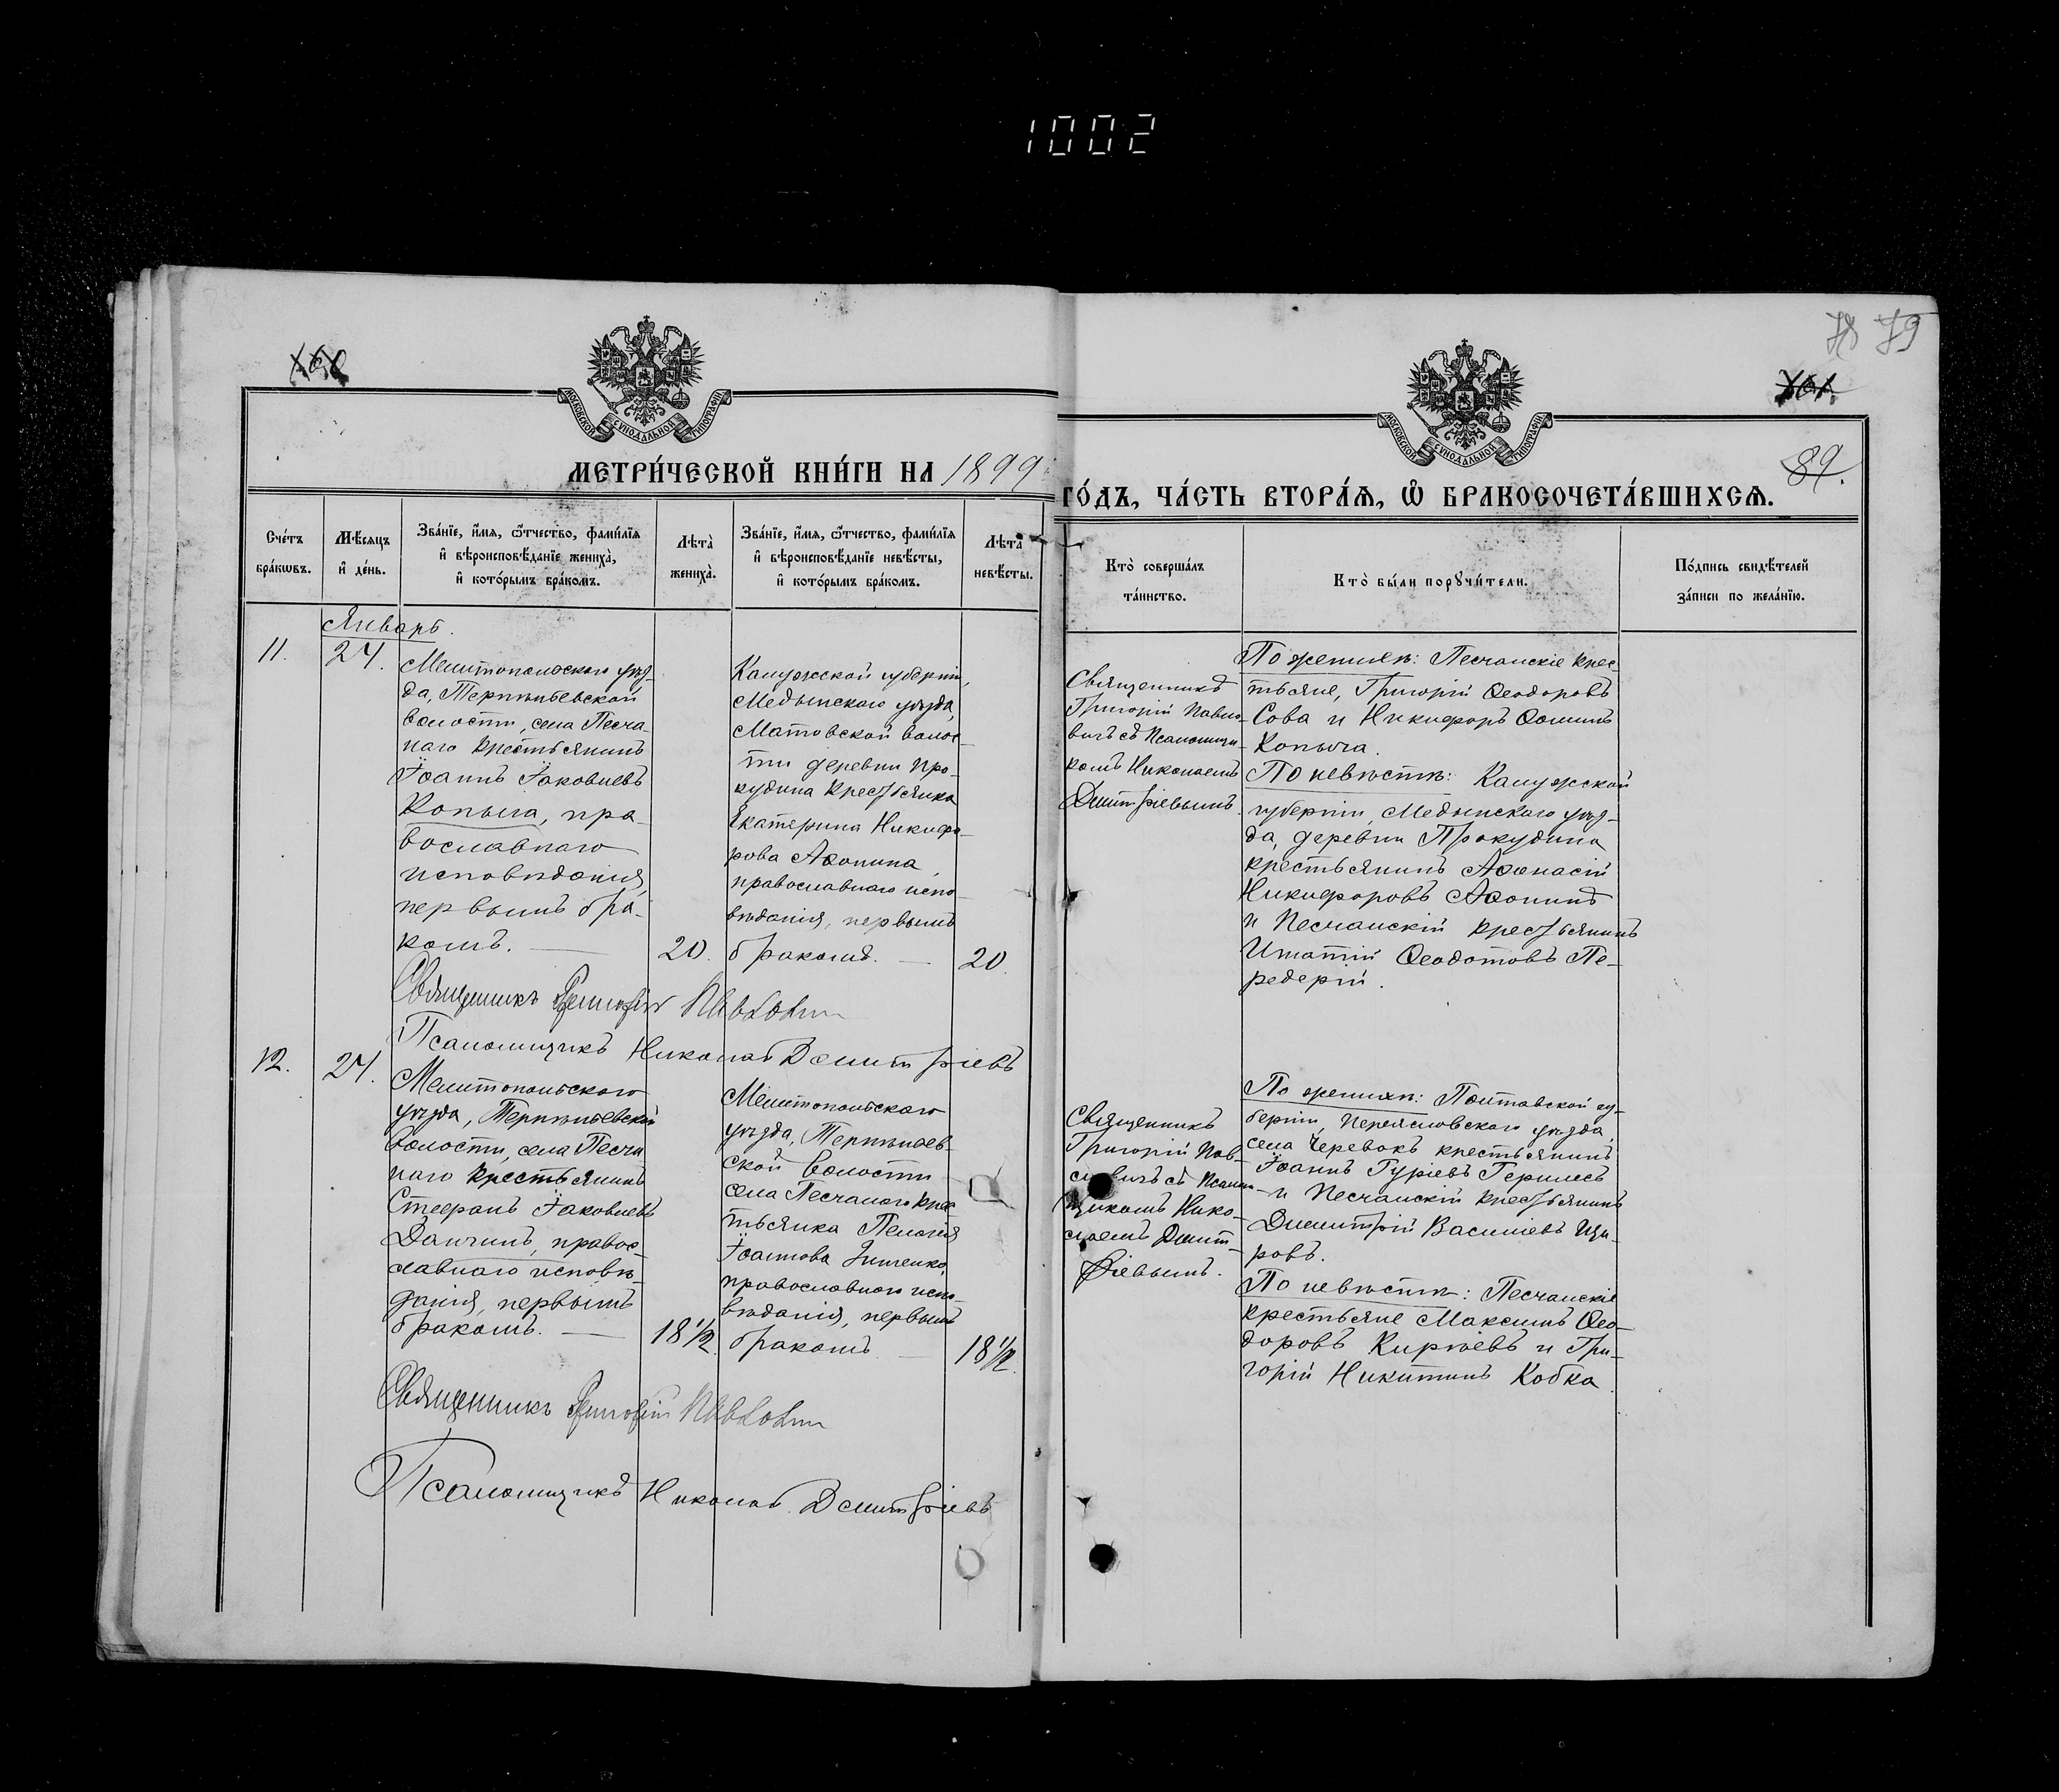 1002
79
89.
МОСКОВСКОЙ СѴНОДАЛЬНОЙ ТИПОГРАФІИ
МОСКОВСКОЙ СѴНОДАЛЬНОЙ ТИПОГРАФІИ
МЕТРИ́ЧЕСКОЙ КНИ́ГИ НА 1899
ГО́ДЪ, ЧА́СТЬ ВТОРА́Ѧ, Ѡ҆ БРАКОСОЧЕТА́ВШИХСѦ.
Сче́тъ
бра́кѡвъ.
Мѣ́сяцъ
и҆ де́нь.
Зва́нїе, и҆́мя, ѻ҆́тчество, фами́лїя
и҆ вѣроисповѣ́данїе жениха̀,
и҆ кото́рымъ бра́комъ.
Лѣта̀
жениха̀.
Зва́нїе, и҆́мя, ѻ҆́тчество, фами́лїя
и҆ вѣроисповѣ́данїе невѣ́сты,
и҆ кото́рымъ бра́комъ.
Лѣта̀
невѣ́сты.
Кто̀ соверша́лъ
та́инство.
Кто̀ бы́ли порꙋчи́тели.
По́дпись свидѣ́телей
за́писи по жела́нїю.
Январь.
11.
24.
Мелитопольскаго уѣз-
да, Терпѣньевской
волости, села Песча-
наго крестьянинъ
Іоаннъ Іаковлевъ
Копыла, пра-
вославнаго
исповѣданія,
первымъ бра-
комъ.
20.
Калужской губерніи,
Медынскаго уѣзда,
Матовской волос-
ти деревни Про-
кудина крестьянка
Екатерина Никифо-
рова Аѳонина,
православнаго испо-
вѣданія, первымъ
бракомъ.
20.
Священникъ
Григорій Павло-
вичъ съ Псаломщи-
комъ Николаемъ
Дмитріевымъ.
По женихѣ: Песчанскіе крес-
тьяне, Григорій Ѳеодоровъ
Сова и Никифоръ Ѳоминъ
Копыла.
По невѣстѣ: Калужской
губерніи, Медынскаго уѣз-
да, деревни Прокудина
крестьянинъ Аѳонасій
Никифоровъ Аѳонинъ
и Песчанскій крестьянинъ
Игнатій Ѳеодотовъ Пе-
редерій.
Священникъ Григорій Павловичъ
Псаломщикъ Николай Дмитріевъ
12.
24.
Мелитопольскаго
уѣзда, Терпѣньевской
волости, села Песча
наго крестьянинъ
Стефанъ Іаковлевъ
Данчинъ, правос-
лавнаго исповѣ-
данія, первымъ
бракомъ.
18 1/2.
Мелитопольскаго
уѣзда, Терпѣньев-
ской волости
села Песчанаго крес-
тьянка Пелагія
Іоаннова Зинченко,
православнаго испо-
вѣданія, первымъ
бракомъ
18 1/2.
Священникъ
Григорій Пав-
ловичъ съ Псалом-
щикомъ Нико-
лаемъ Дмит-
ріевымъ.
По женихѣ: Полтавской гу-
берніи, Переясловскаго уѣзда,
села Черевокъ крестьянинъ
Іоаннъ Гуріевъ Герилесъ
и Песчанскій крестьянинъ
Димитрій Василіевъ Щу-
ровъ.
По невѣстѣ: Песчанскіе
крестьяне Максимъ Ѳео-
доровъ Кирѣевъ и Гри-
горій Никитинъ Кобка.
Священникъ Григорій Павловичъ
Псаломщикъ Николай Дмитріевъ